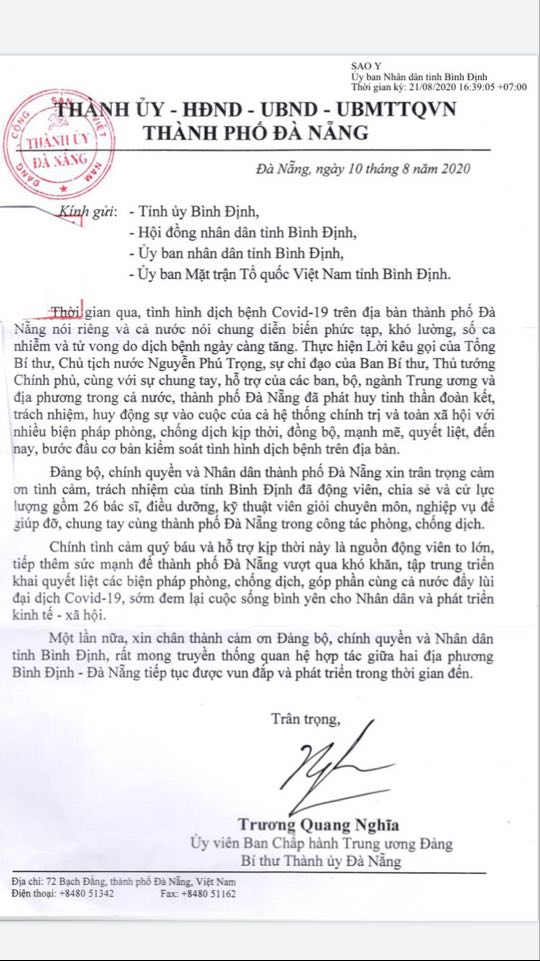 SAO Y
Ủy ban Nhân dân tỉnh Bình Định
Thời gian ký: 21/08/2020 16:39:05 +07:00
THÀNH ỦY - HĐND - UBND - UBMTTQVN
THÀNH PHỐ ĐÀ NẴNG
ĐẢNG CỘNG SẢN VIỆT NAM
THÀNH ỦY
ĐÀ NẴNG
Đà Nẵng, ngày 10 tháng 8 năm 2020
Kính gửi: - Tỉnh ủy Bình Định,
- Hội đồng nhân dân tỉnh Bình Định,
- Ủy ban nhân dân tỉnh Bình Định,
- Ủy ban Mặt trận Tổ quốc Việt Nam tỉnh Bình Định.
Thời gian qua, tình hình dịch bệnh Covid-19 trên địa bàn thành phố Đà
Nẵng nói riêng và cả nước nói chung diễn biến phức tạp, khó lường, số ca
nhiễm và tử vong do dịch bệnh ngày càng tăng. Thực hiện Lời kêu gọi của Tổng
Bí thư, Chủ tịch nước Nguyễn Phú Trọng, sự chỉ đạo của Ban Bí thư, Thủ tướng
Chính phủ, cùng với sự chung tay, hỗ trợ của các ban, bộ, ngành Trung ương và
địa phương trong cả nước, thành phố Đà Nẵng đã phát huy tinh thần đoàn kết,
trách nhiệm, huy động sự vào cuộc của cả hệ thống chính trị và toàn xã hội với
nhiều biện pháp phòng, chống dịch kịp thời, đồng bộ, mạnh mẽ, quyết liệt, đến
nay, bước đầu cơ bản kiểm soát tình hình dịch bệnh trên địa bàn.
Đảng bộ, chính quyền và Nhân dân thành phố Đà Nẵng xin trân trọng cảm
ơn tình cảm, trách nhiệm của tỉnh Bình Định đã động viên, chia sẻ và cử lực
lượng gồm 26 bác sĩ, điều dưỡng, kỹ thuật viên giỏi chuyên môn, nghiệp vụ để
giúp đỡ, chung tay cùng thành phố Đà Nẵng trong công tác phòng, chống dịch.
Chính tình cảm quý báu và hỗ trợ kịp thời này là nguồn động viên to lớn,
tiếp thêm sức mạnh để thành phố Đà Nẵng vượt qua khó khăn, tập trung triển
khai quyết liệt các biện pháp phòng, chống dịch, góp phần cùng cả nước đẩy lùi
đại dịch Covid-19, sớm đem lại cuộc sống bình yên cho Nhân dân và phát triển
kinh tế - xã hội.
Một lần nữa, xin chân thành cảm ơn Đảng bộ, chính quyền và Nhân dân
tỉnh Bình Định, rất mong truyền thống quan hệ hợp tác giữa hai địa phương
Bình Định - Đà Nẵng tiếp tục được vun đắp và phát triển trong thời gian đến.
Trân trọng,
Trương Quang Nghĩa
Ủy viên Ban Chấp hành Trung ương Đảng
Bí thư Thành ủy Đà Nẵng
Địa chỉ: 72 Bạch Đằng, thành phố Đà Nẵng, Việt Nam
Điện thoại: +8480 51342 Fax: +8480 51162